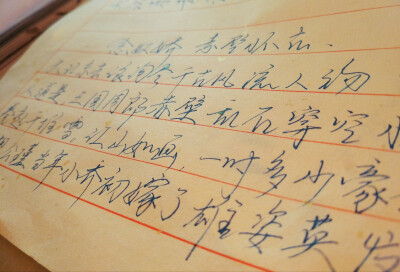 念奴娇 赤壁怀古.
大江东去浪淘尽千古风流人物
人道是,三国周郎赤壁乱石穿空
卷起千堆雪,江山如画,一时多少豪
公瑾当年小乔初嫁了雄姿英发